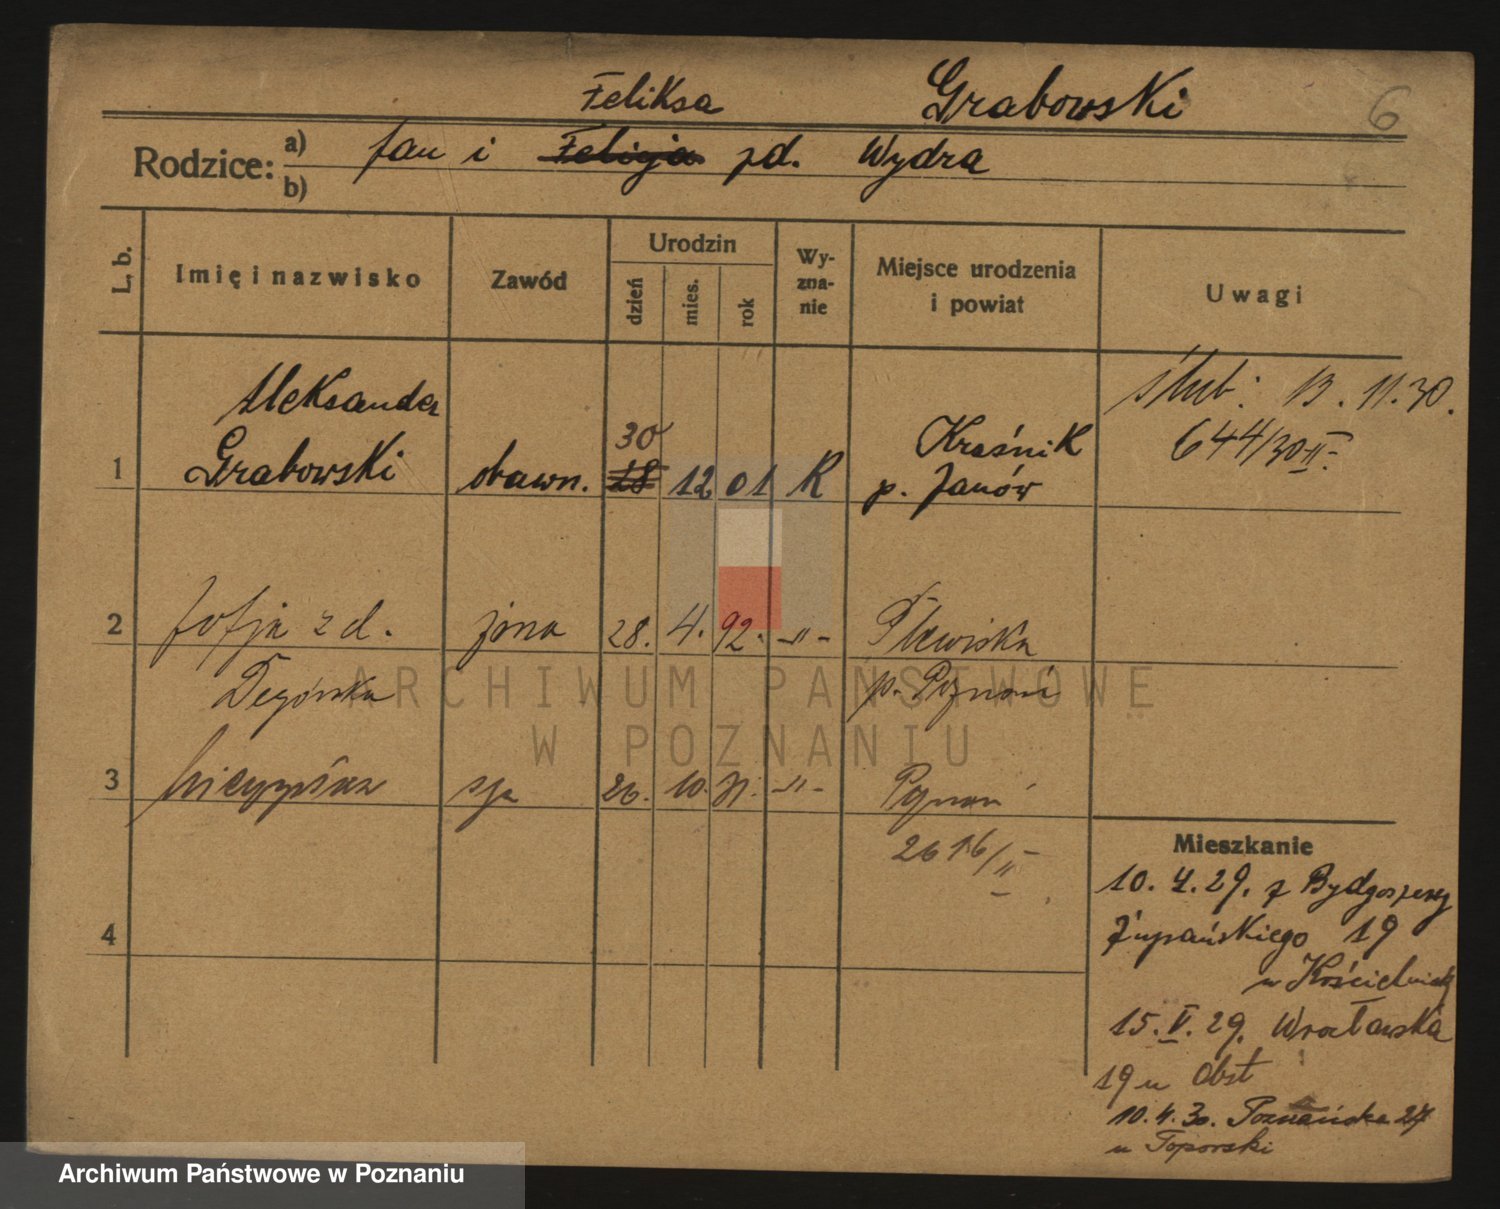 Feliksa Grabowski 6
Rodzice: a) Jan i Felicja zd. Wydra
b)
L. b.
Imię i nazwisko
Zawód
Urodzin
dzień
mies.
rok
Wy-
zna-
nie
Miejsce urodzenia
i powiat
Uwagi
Aleksander
1 Grabowski obuwn. 30 18 12 01 R Kraśnik
p. Janów
ślub: 13.11.30.
644/30 II.
2 Zofja z d. żona 28. 4. 92. -"- Plewiska
Degórska p. Poznań
3 Mieczysław syn 26. 10. 31. -"- Poznań
2616/II
4
Mieszkanie
10. 4. 29. z Bydgoszczy
Żupańskiego 19
u Kościelniak
15. V. 29. Wrocławska
19 u Obst
10. 4. 30. Poznańska 27
u Toporski
ARCHIWUM PAŃSTWOWE
W POZNANIU
Archiwum Państwowe w Poznaniu